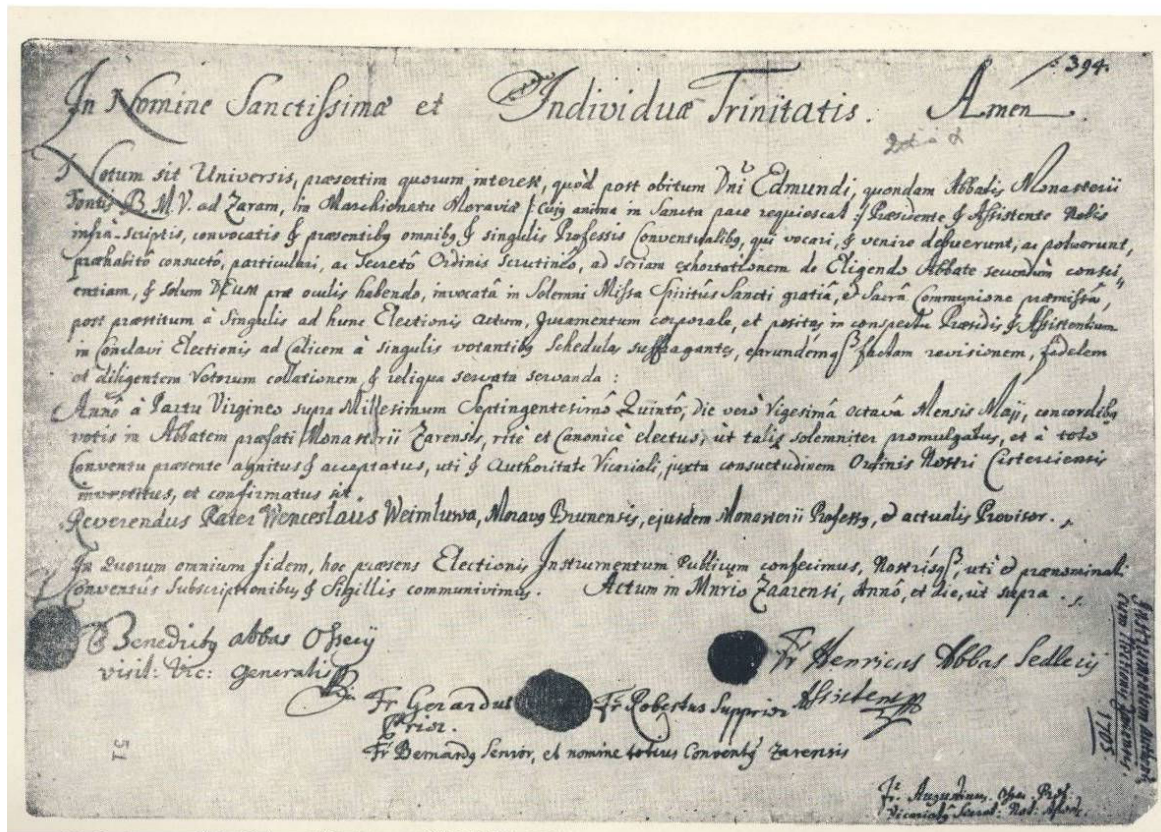 394.
In Nomine Sanctissimæ et Individuæ Trinitatis. Amen.
Notum sit Universis, præsertim quorum interest, quòd post obitum Dni Edmundi, quondam Abbatis Monasterii
Fontis B. M. V. ad Zaram, in Marchionatu Moraviæ /: Cujq anima in Sancta pace requiescat :/ Præsidente & Assistente Nobis
infra-scriptis, convocatis & præsentibq omnibq & singulis Professis Conventualibq, qui vocari, & venire debuerunt, ac potuerunt,
præhabitô consuetô, particulari, ac secretô Ordinis scrutinio, ad seriam exhortationem de Eligendo Abbate secundùm consci,,
entiam, & solum DEUM præ oculis habendo, invocatâ in Solemni Missa Spiritûs Sancti gratiâ, et Sacrâ Communione præmissâ,
post præstitum à Singulis ad hunc Electionis actum, Juramentum corporale, et positas in conspectu Præsidis & Assistentium
in Conclavi Electionis ad Calicem à singulis votantibq schedulas suffragantes, earundemq factam revisionem, fidelem
et diligentem Votorum collationem, & reliqua servata servanda :
Annô à Partu Virgineo supra Millesimum Septingentesimô Quintô, die verò Vigesimâ octavâ Mensis Maji, concordibq
votis in Abbatem præfati Monasterii Zarensis, ritè et Canonicè electus, ùt talis solemniter promulgatus, et à toto
Conventu præsente agnitus & acceptatus, uti & Authoritate Vicariali, juxta consuetudinem Ordinis Nostri Cisterciensis
investitus, et confirmatus sit.
Reverendus Pater Wenceslaus Weimluwa, Moravq Brunensis, ejusdem Monasterii Professq, et actualis Provisor.
In Quorum omnium fidem, hoc præsens Electionis Instrumentum Publicum confecimus, Nostrisq, uti et prænominati
Conventûs Subscriptionibq & Sigillis communivimus. Actum in Mnrio Zaarensi, Annô, et die, ùt supra.
Benedictq abbas Ossecij
visit: Vic: Generalis
Fr Henricus Abbas Sedlecij
Assistens
Fr Gerardus
Prior.
Fr Robertus Supprior
Fr Bernardq Senior, et nomine totius Conventq Zarensis
51
Instrumentum
1705.
Fr. Augustinus Prof.